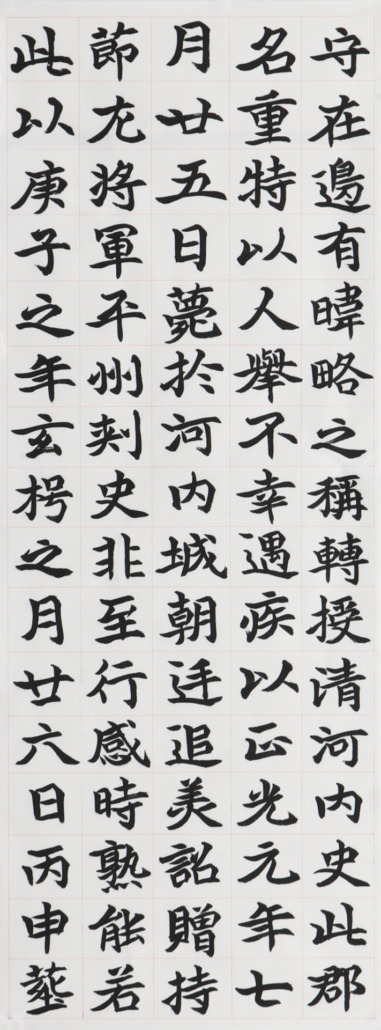 守在邊有暐略之稱轉授清河内史此郡
名重特以人舉不幸遇疾以正光元年七
月廿五日薨於河内城朝廷追美詔贈持
節龙將軍平州刾史非至行感時熟能若
此以庚子之年玄枵之月廿六日丙申塟